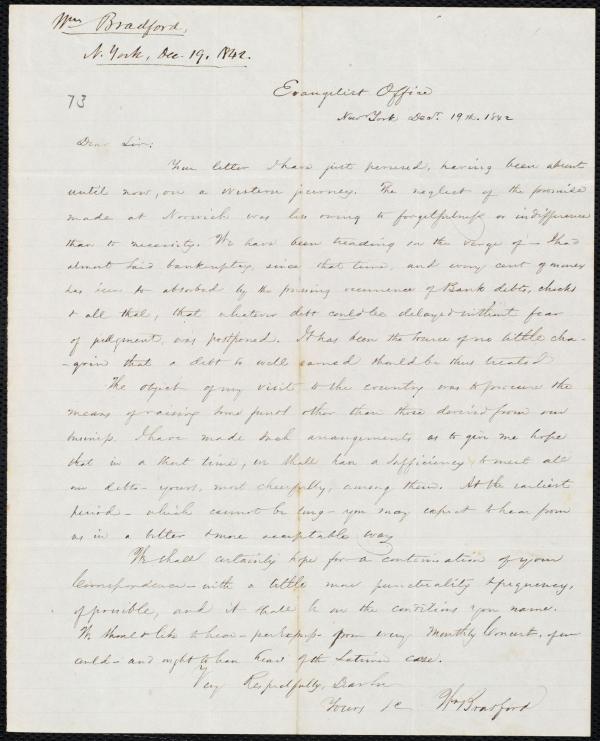 Wm Bradford,
N. York, Dec. 19. 1842.
73
Evangelist Office
New York Decr. 19th. 1842
Dear Sir:
Your letter I have just perused, having been absent
until now, on a western journey. The neglect of the promise
made at Norwich was less owing to forgetfulness or indifference
than to necessity. We have been treading on the verge of – I had
almost said bankruptcy, since that time, and every cent of money
has been so absorbed by the pressing recurrence of Bank debts, checks
& all that, that whatever debt could be delayed without fear
of judgment, was postponed. It has been the source of no little cha-
-grin that a debt so well earned should be thus treated
The object of my visit to the country was to procure the
means of raising some funds other than those derived from our
business. I have made such arrangements as to give me hope
that in a short time, we shall have a sufficiency to meet all
our debts – yours, most cheerfully, among them. At the earliest
period – which cannot be long – you may expect to hear from
us in a better & more acceptable way
We shall certainly hope for a continuation of your
Correspondence – with a little more punctuality & frequency,
if possible, and it shall be on the conditions you name.
We should like to hear – perhaps from every Monthly Concert, if we
could – and ought to have heard of the Latimer case.
Very Respectfully, Dear Sir
Yours &c Wm Bradford